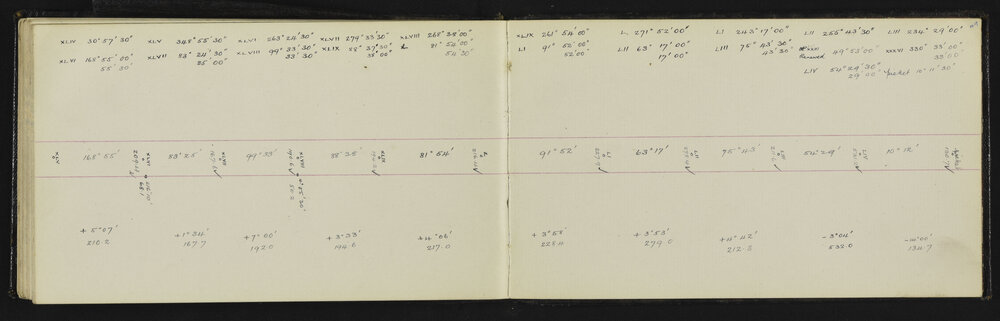 XLIV 30° 57' 30" XLV 348° 55' 30" XLVI 263° 24' 30" XLVII 279° 33' 30" XLVIII 268° 38' 00"
XLVI 168° 55' 00" XLVII 83° 24' 30" XLVIII 99° 33' 30" XLIX 88° 37' 30" L 81° 54' 00"
55' 30" 25' 00" 33' 30" 38' 00" 54' 30"
168° 55' 83° 25' 99° 33' 81° 54'
+ 5° 07' + 1° 34' + 7° 00' + 3° 33' + 4° 06'
210.2 167.7 192.0 194.8 217.0
XLIX 261° 54' 00" L 271° 52' 00" LI 243° 17' 00" LII 255° 43' 30" LIII 234° 29' 00"
LI 91° 52' 00" LII 63° 17' 00" LIII 75° 43' 30" 49° 53' 00" XXXVI 330° 33' 00"
52' 00" 17' 00" 43' 30" Renewed 33' 00"
LIV 54° 29' 30" Picket 10° 11' 30"
29' 00"
91° 52' 63° 17' 75° 43' 54° 29' 10° 12'
+ 3° 58' + 3° 53' + 4° 42' - 3° 04' - 10° 00'
228.4 279.0 212.8 532.0 134.7